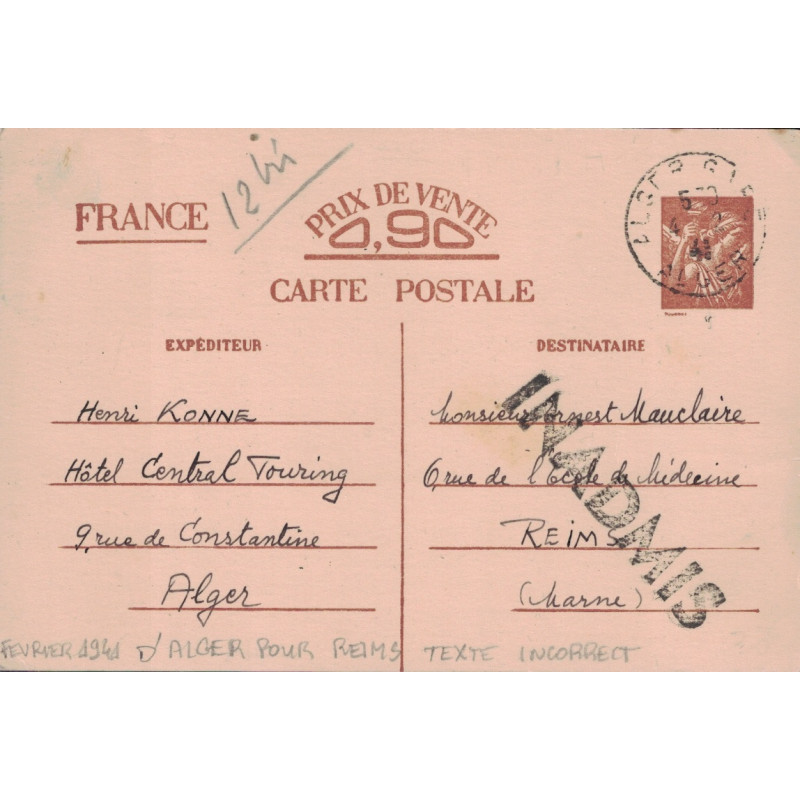 FRANCE
12 bis
PRIX DE VENTE
0,90
CARTE POSTALE
ALGER GARE
4 2
41
ALGER
EXPÉDITEUR
Henri KONNE
Hôtel Central Touring
9, rue de Constantine
Alger
DESTINATAIRE
Monsieur Ernest Mauclaire
6, rue de l'Ecole de Médecine
REIMS
(Marne)
INADMIS
FEVRIER 1941 D'ALGER POUR REIMS TEXTE INCORRECT